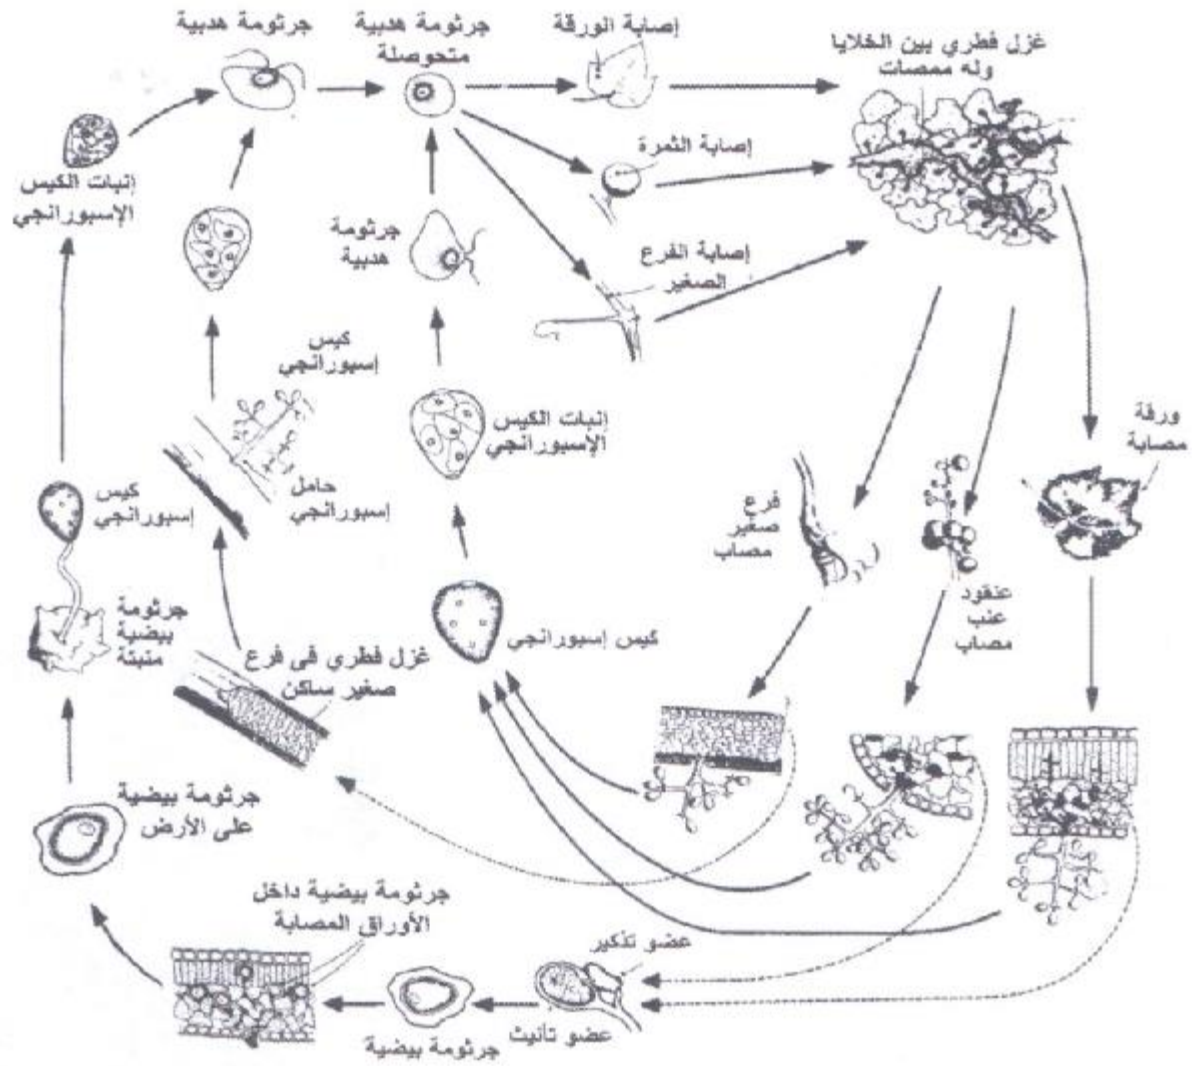 جرثومة هدبية
جرثومة هدبية
متحوصلة
إصابة الورقة
غزل فطري بين الخلايا
وله ممصات
إصابة الثمرة
إنبات الكيس
الإسبورانجي
جرثومة
هدبية
إصابة الفرع
الصغير
كيس
إسبورانجي
ورقة
مصابة
إنبات الكيس
الإسبورانجي
حامل
إسبورانجي
كيس
إسبورانجي
فرع
صغير
مصاب
عنقود
عنب
مصاب
جرثومة
بيضية
منبتة
كيس إسبورانجي
غزل فطري فى فرع
صغير ساكن
جرثومة بيضية
على الأرض
جرثومة بيضية داخل
الأوراق المصابة
عضو تذكير
عضو تأنيث
جرثومة بيضية